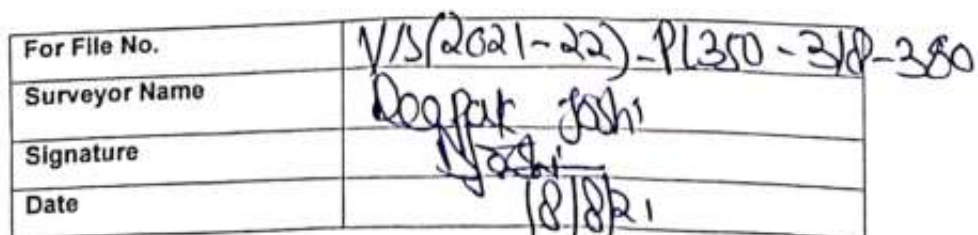 For File No. VIS(2021-22)-PL350-318-380
Surveyor Name Deepak Joshi
Signature Joshi
Date 18/8/21